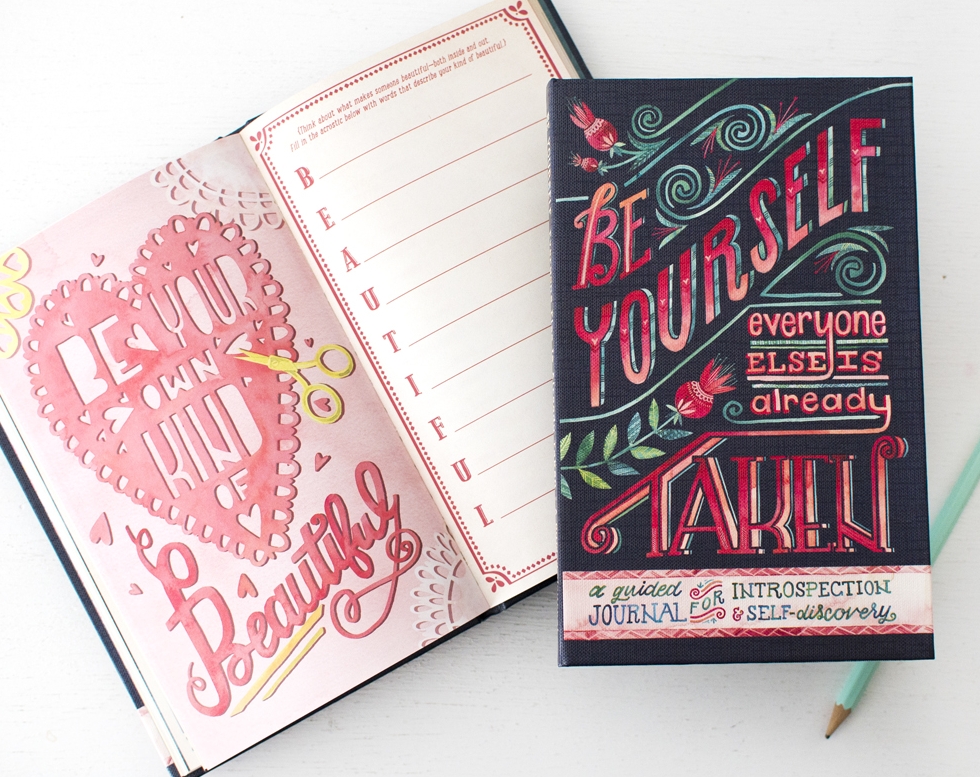 BE YOUR
OWN
KIND
OF
Beautiful
(Think about what makes someone beautiful—both inside and out.
Fill in the acrostic below with words that describe your kind of beautiful!)
B
E
A
U
T
I
F
U
L
BE
YOURSELF
everyone
ELSE IS
already
TAKEN
a guided
JOURNAL FOR INTROSPECTION
& SELF-discovery